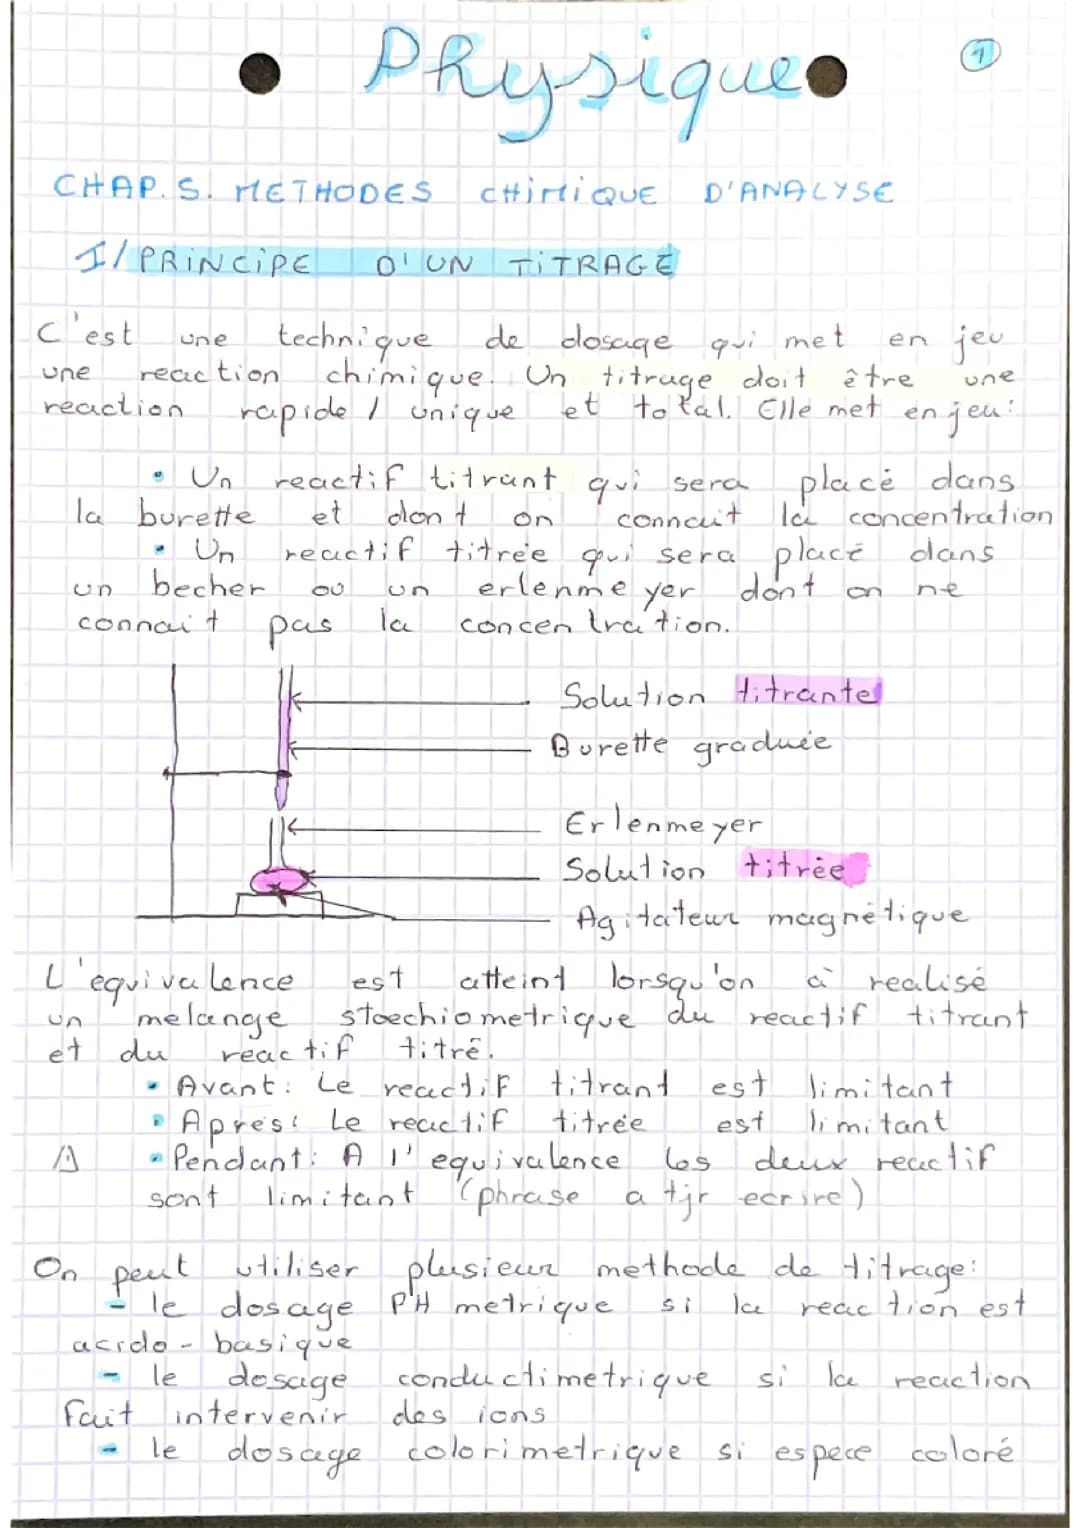 Physique
1
CHAP. 5. METHODES CHIMIQUE D'ANALYSE
I/ PRINCIPE D'UN TITRAGE
C'est une technique de dosage qui met en jeu
une reaction chimique. Un titrage doit être une
reaction rapide / unique et total. Elle met en jeu :
• Un reactif titrant qui sera placé dans
la burette et dont on connait la concentration
• Un reactif titrée qui sera placé dans
un becher ou un erlenmeyer dont on ne
connait pas la concentration.
Solution titrante
Burette graduée
Erlenmeyer
Solution titrée
Agitateur magnétique
L'equivalence est atteint lorsqu'on à realisé
un melange stoechiometrique du reactif titrant
et du reactif titré.
• Avant : Le reactif titrant est limitant
• Apres : Le reactif titrée est limitant
⚠ • Pendant : A l'equivalence les deux reactif
sont limitant (phrase a tjr ecrire)
On peut utiliser plusieur methode de titrage :
- le dosage PH metrique si la reaction est
acido-basique
- le dosage conductimetrique si la reaction
fait intervenir des ions
- le dosage colorimetrique si espece coloré